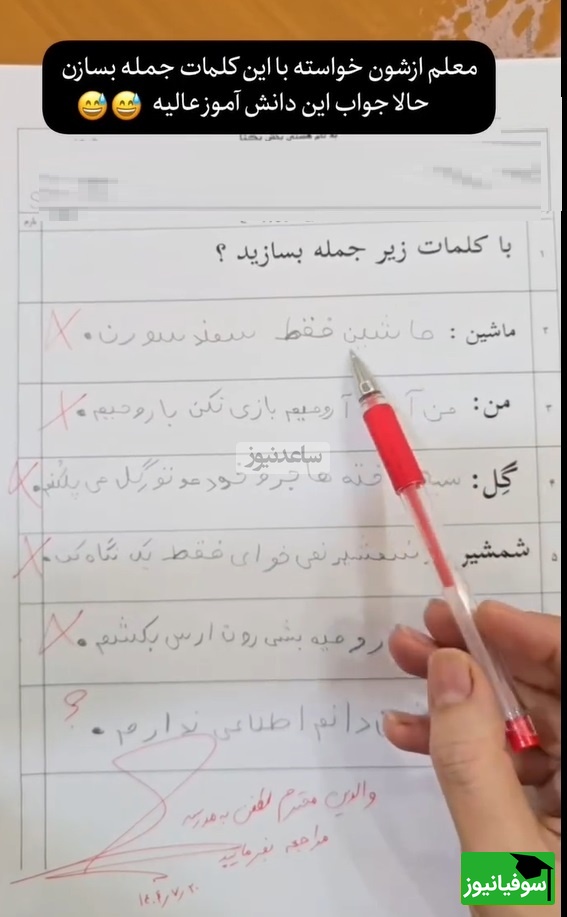 معلم ازشون خواسته با این کلمات جمله بسازن
حالا جواب این دانش آموز عالیه 😅😅
با کلمات زیر جمله بسازید ؟
ماشین : ماشین فقط سمند سورن.
من: من آ آرومیم بازی نکن با روحیم.
ساعدنیوز
گِل: ها جرو خودمونو گِل می
شمشیر شمشیر نمی خوای فقط یک نگاه
رومیه بشی روت ارس بکشم.
دانم اطلاعی ندارم.
؟
والدین محترم لطفن به مدرسه
مراجعه بفرمایید
۱۴۰۴٫۷٫۲۰
سوفیانیوز